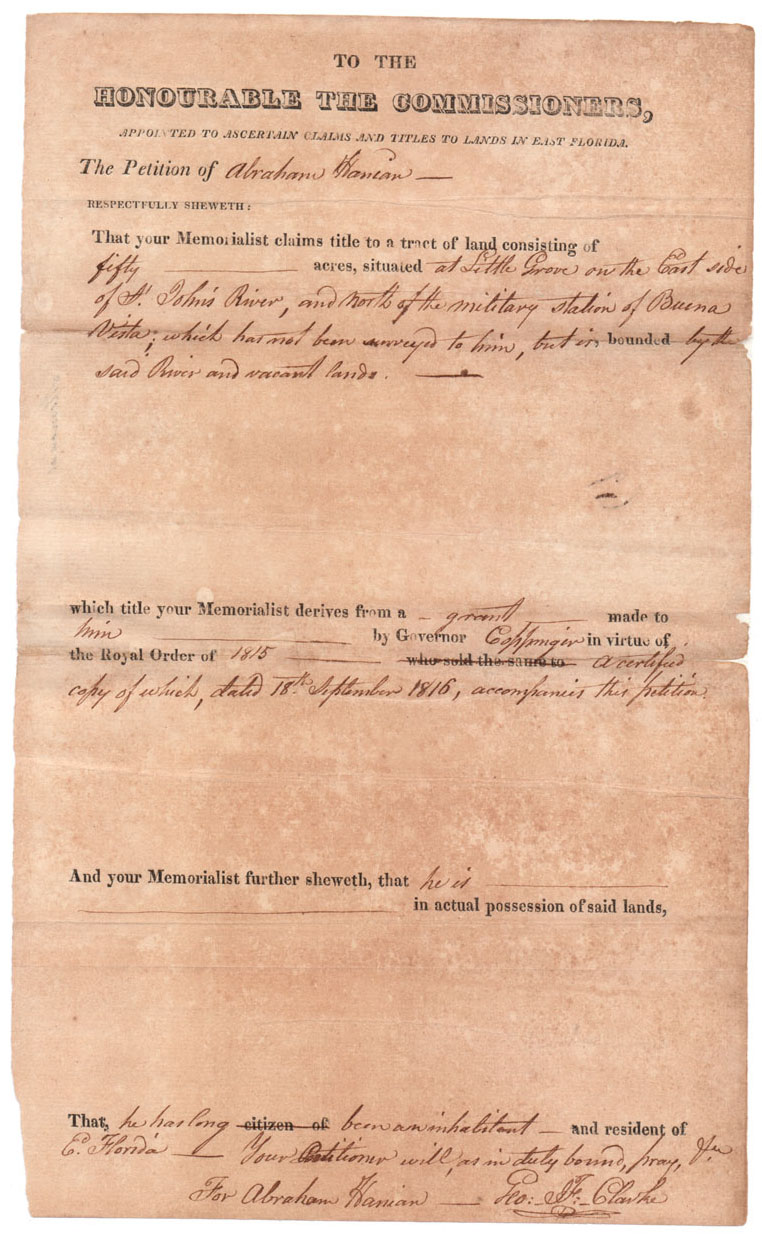 TO THE
HONOURABLE THE COMMISSIONERS,
APPOINTED TO ASCERTAIN CLAIMS AND TITLES TO LANDS IN EAST FLORIDA.
The Petition of Abraham Hanian —
RESPECTFULLY SHEWETH:
That your Memorialist claims title to a tract of land consisting of
fifty acres, situated at Little Grove on the East side
of St. John's River, and North of the military station of Buena
Vista; which has not been surveyed to him, but is, bounded by the
said River and vacant lands. —
which title your Memorialist derives from a grant made to
him by Governor Coppinger in virtue of
the Royal Order of 1815 who sold the same to a certified
copy of which, dated 18th September 1816, accompanies this petition.
And your Memorialist further sheweth, that he is
in actual possession of said lands,
That, he has long citizen of been an inhabitant — and resident of
E. Florida — Your Petitioner will, as in duty bound, pray, &c
For Abraham Hanian — Geo: J. F. Clarke